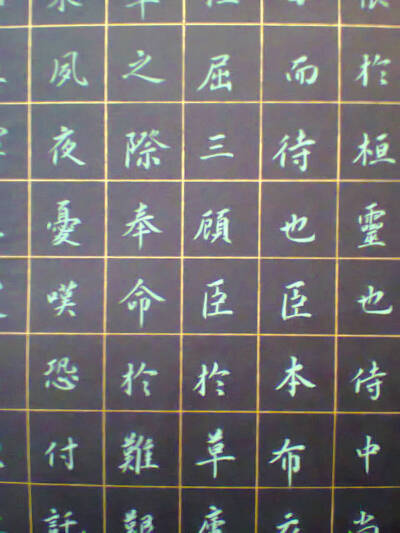 於桓靈也侍中尚
而待也臣本布衣
屈三顧臣於草廬
之際奉命於難
夙夜憂嘆恐付託